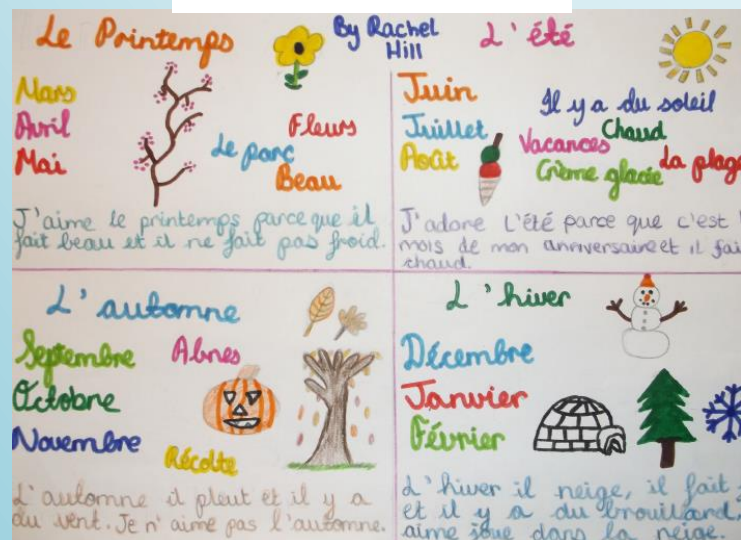 Le Printemps
By Rachel
Hill
Mars
Avril
Mai
Fleurs
Le parc
Beau
J'aime le printemps parce que il
fait beau et il ne fait pas froid.
L'été
Juin
Juillet
Août
Il y a du soleil
Chaud
Vacances
Crème glacée
La plage
J'adore L'été parce que c'est
mois de mon anniversaire et il fai
chaud.
L'automne
Septembre
Octobre
Novembre
Récolte
L'automne il pleut et il y a
du vent. Je n'aime pas l'automne.
L'hiver
Décembre
Janvier
Février
L'hiver il neige, il fait
et il y a du brouillard,
aime joue dans la neige.